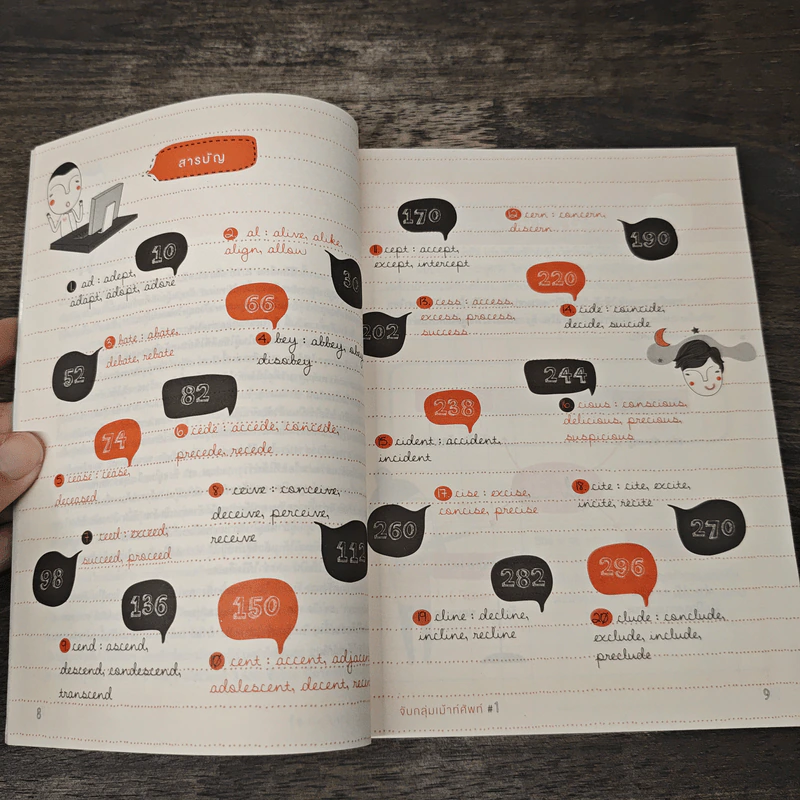 สารบัญ
10
1 ad : adept,
adapt, adopt, adore
2 al : alive, alike,
align, allow
30
52
3 bate : abate,
debate, rebate
66
4 bey : abbey,
disobey
74
5 cease : cease,
deceased
82
6 cede : accede, concede,
precede, recede
98
7 ceed : exceed,
succeed, proceed
8 ceive : conceive,
deceive, perceive,
receive
112
136
9 cend : ascend,
descend, condescend,
transcend
150
10 cent : accent,
adolescent, decent,
8
170
11 cept : accept,
except, intercept
12 cern : concern,
discern
190
202
13 cess : access,
excess, process,
success
220
14 cide : coincide,
decide, suicide
238
15 cident : accident,
incident
244
16 cious : conscious,
delicious, precious,
suspicious
260
17 cise : excise,
concise, precise
18 cite : cite, excite,
incite, recite
270
282
19 cline : decline,
incline, recline
296
20 clude : conclude,
exclude, include,
preclude
จับกลุ่มเม้าท์ศัพท์ #1
9